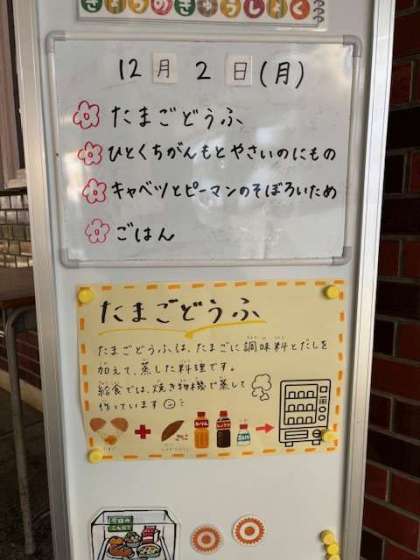 きょうのきゅうしょく
12月2日(月)
たまごどうふ
ひとくちがんもとやさいのにもの
キャベツとピーマンのそぼろいため
ごはん
たまごどうふ
たまごどうふは、たまごに調味料とだしを
加えて、蒸した料理です。
給食では、焼き物機で蒸して
作っています